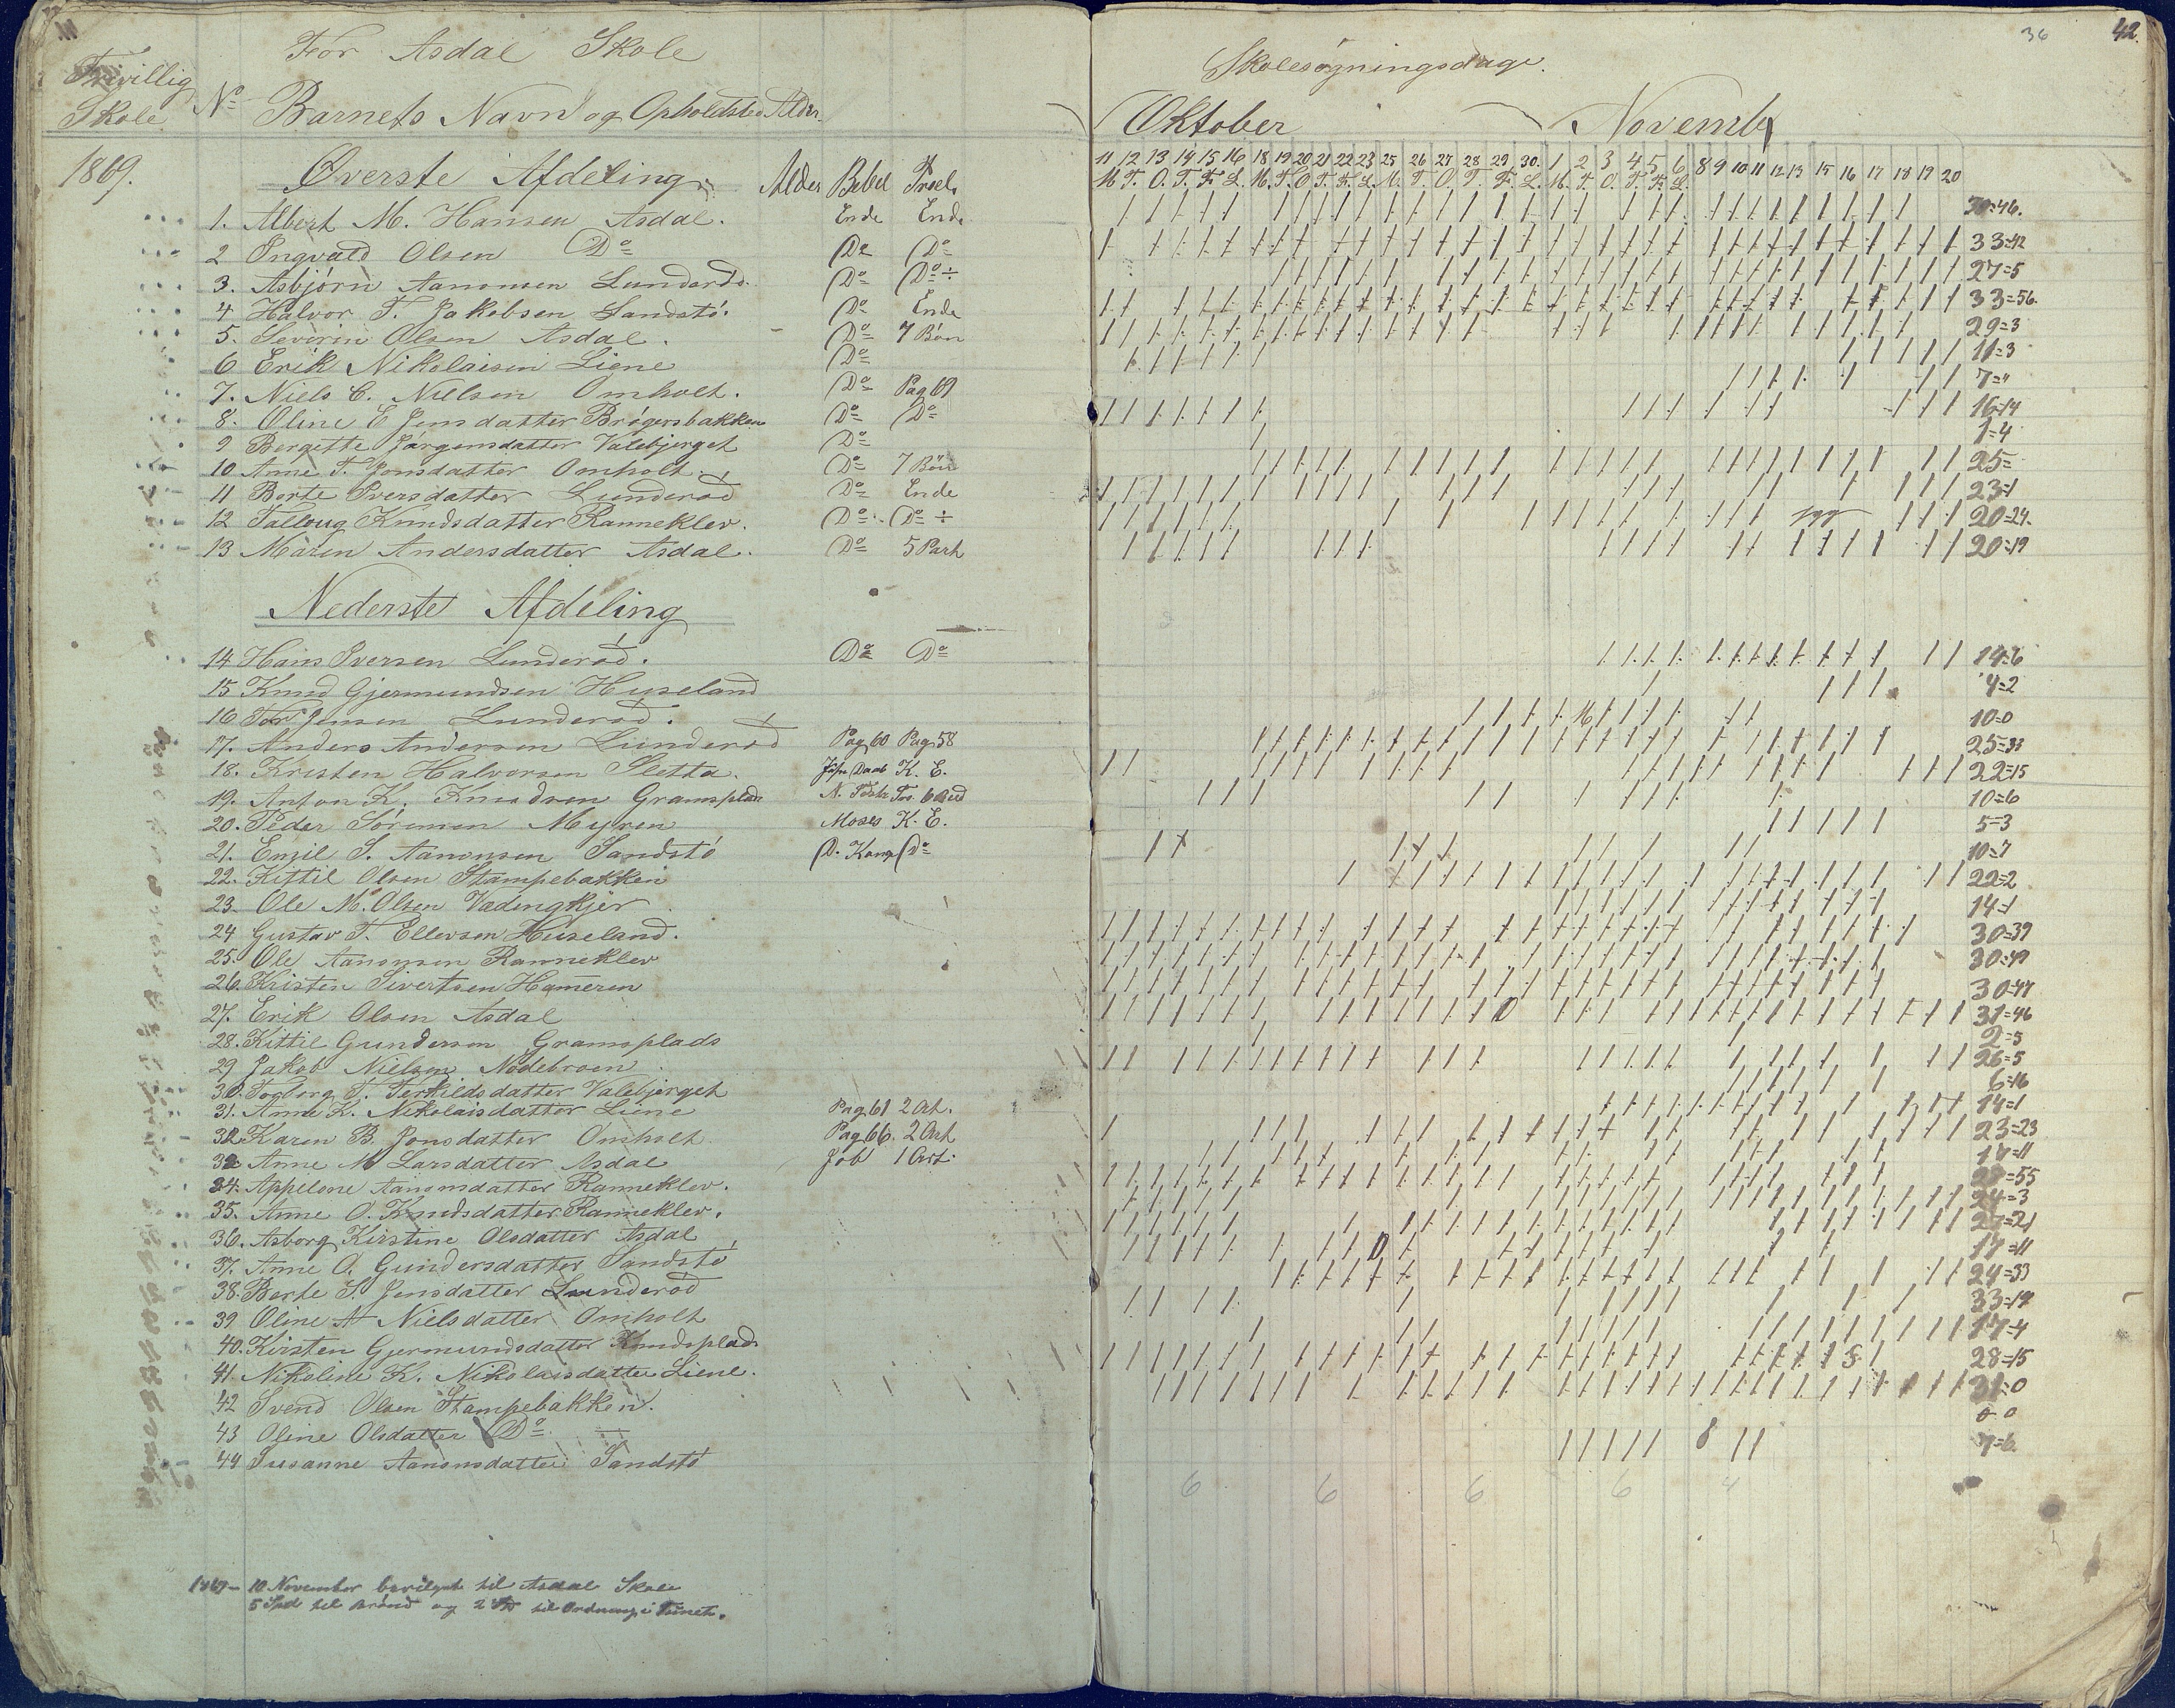 For Asdal Skole
Frivillig Skole
No Barnets Navn og Opholdsted Alder
1869.
Øverste Afdeling Alder Bibel
1. Albert M. Hansen Asdal. Ende Ende
2 Ingvald Olsen Do Do Do
3. Asbjørn Aanonsen Lunderød. Do Do ÷
4 Halvor T. Jakobsen Sandstø. Do Ende
5. Severin Olsen Asdal. Do 7 Bøn
6 Erik Nikolaisen Liene Do
7. Niels C. Nielsen Omholt. Do Pag 69
8. Oline E Jensdatter Brøgersbakken Do Do
9 Bergette Jørgensdatter Valebjerget Do
10 Anne T. Jonsdatter Omholt. Do 7 Bøn
11 Berte Iversdatter Lunderød Do Ende
12 Talloug Knudsdatter Ranneklev. Do Do ÷
13 Maren Andersdatter Asdal. Do 5 Part
Nederste Afdeling
14 Hans Iversen Lunderød. Do Do
15 Knud Gjermundsen Huseland
16 Tor Jensen Lunderød.
17. Anders Andersen Lunderød Pag 60 Pag 58
18. Kristen Halvorsen Sletta. K. E.
19. Anton K. Knudsen Gramsplads
20. Peder Sørensen Myren Moses K. E.
21. Emil S. Aanonsen Sandstø D. Kong Do
22. Kittil Olsen Stampebakken
23. Ole M. Olsen Vedingkjer
24 Gustav T. Ellevsen Huseland.
25. Ole Aanonsen Ranneklev
26. Kristen Sivertsen Hameren
27. Erik Olsen Asdal
28. Kittil Gundersen Gramsplads
29 Jakob Nielsen Nødebroen
30. Torborg T. Terkildsdatter Valebjerget
31. Anne K. Nikolaisdatter Liene Pag 61 2 Art.
32 Karen B. Jonsdatter Omholt Pag 66. 2 Art
33 Anne M Larsdatter Asdal Job 1 Art.
34. Appelone Aanonsdatter Ranneklev.
35. Anne O. Knudsdatter Ranneklev.
36. Asborg Kirstine Olsdatter Asdal
37. Anne O. Gundersdatter Sandstø
38. Berte S. Jensdatter Lunderød
39 Oline A Nielsdatter Omholt
40. Kirsten Gjermundsdatter Knudsplads
41. Nikoline K. Nikolaisdatter Liene.
42 Svend Olsen Stampebakken.
43 Oline Olsdatter Do
44 Susanne Aanonsdatter Sandstø
1869 – 10 November bevilget til Asdal Skole
5 Spd til Brønd og 2 til Ordning i Tunet.
36 42.
Skolesøgningsdage.
Oktober November
11 12 13 14 15 16 18 19 20 21 22 23 25 26 27 28 29 30. 1 2 3 4 5 6 8 9 10 11 12 13 15 16 17 18 19 20
M T. O. T. F. L. M. T. O T. F. L. M. T. O. T. F. L. M. T. O. T. F. L.
30=46.
33=42
27=5
33=56
29=3
11=3
7="
16=14
1=4
25=
23=1
20=24.
20=19
14=6
4=2
10=0
25=33
22=15
10=6
5=3
10=7
22=2
14=1
30=39
30=49
30=47
31=46
2=5
26=5
6=16
14=1
23=23
17=11
28=55
24=3
27=21
17=11
24=33
33=19
17=4
28=15
31=0
0 0
7=6.
6 6 6 6 4